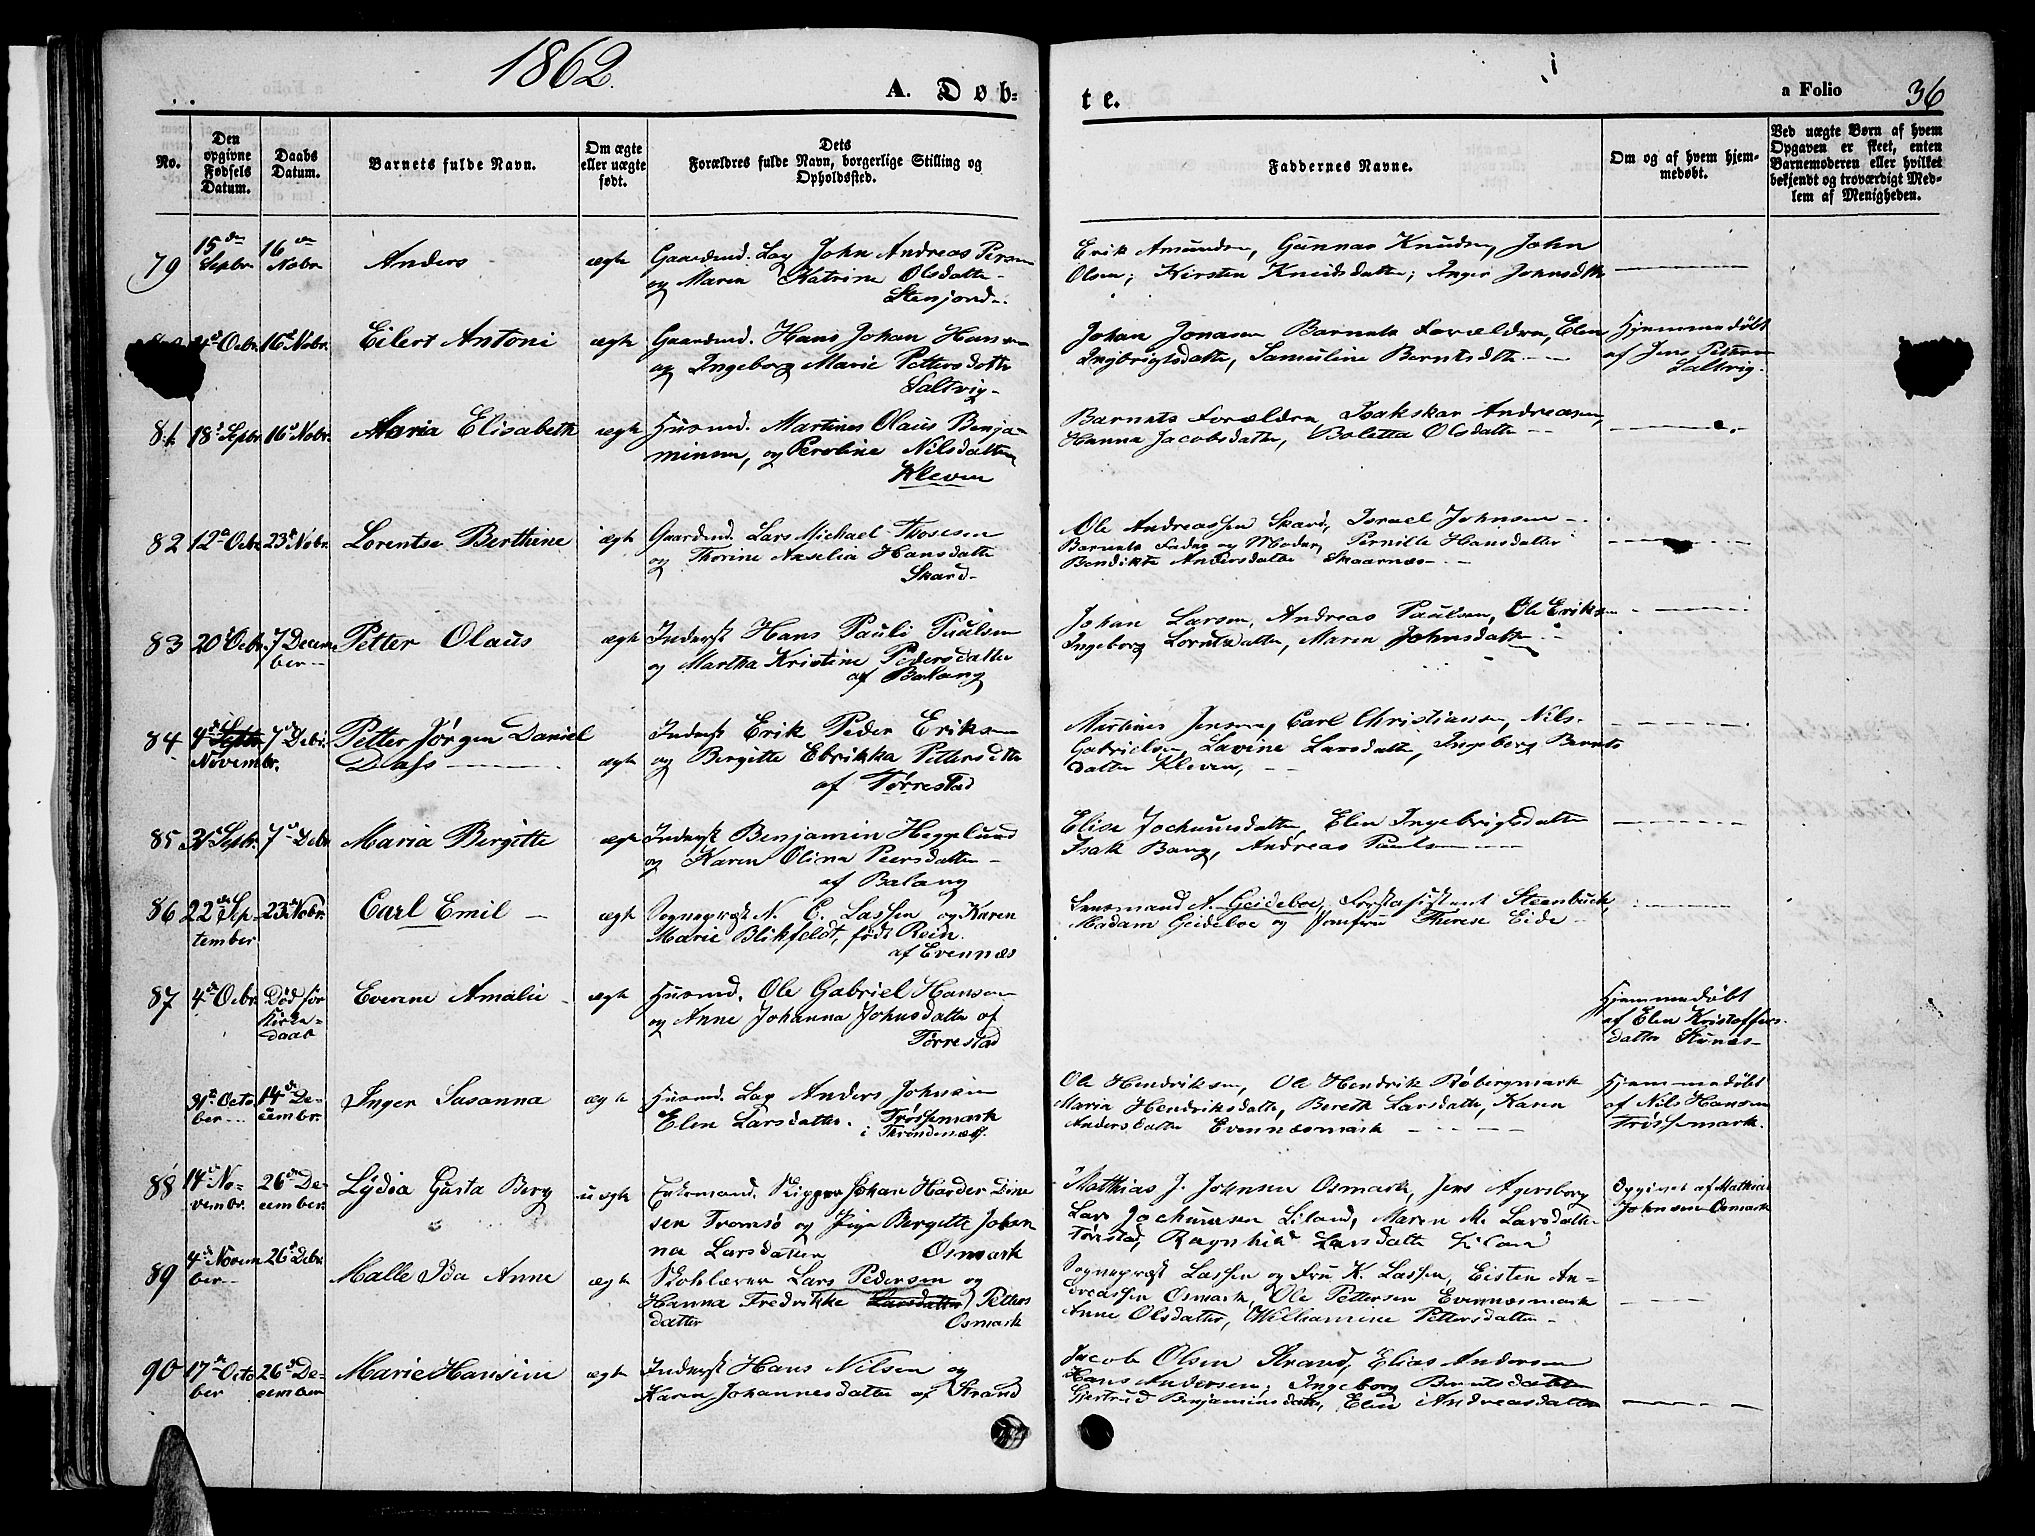 1862.
A. Døb-
te.
a Folio 36
No.
Den opgivne Fødsels Datum.
Daabs Datum.
Barnets fulde Navn.
Om ægte eller uægte født.
Dets
Forældres fulde Navn, borgerlige Stilling og
Opholdssted.
Faddernes Navne.
Om og af hvem hjem-
medøbt.
Ved uægte Børn af hvem
Opgaven er skeet, enten
Barnemoderen eller hvilket
bekjendt og troværdigt Med-
lem af Menigheden.
79 15de Sepbr 16de Nobr Anders ægte Gaardmd. Lap John Andreas Persen
og Maren Katrine Olsdatter
Stenjord
Erik Amundsen, Gunnar Knudsen, John
Olsen; Kirsten Knudsdatter; Inger Johnsdtr
Ocbr. 16d Nobr. Eilert Antoni ægte Gaardmd. Hans Johan Hansen
og Ingeborg Marie Pettersdatter
Saltvig
Johan Jonasen Barnets Forældre, Elen
Ingbrigtsdatter, Samuline Berntsdtr
Hjemmedøbt
af Jens Pettersen
Saltvig.
81. 18d Sepbr 16d Nobr. Maria Elisabeth ægte Husmd. Martines Olaus Benja-
minsen, og Peroline Nilsdatter
Kleven
Barnets Forældre, Isakskar Andreasen,
Hanna Jacobsdatter, Boletta Olsdatter
82 12d Ocbr 23d Nobr. Lorentse Berthine ægte Gaardmd. Lars Michael Thosesen
og Thorine Anselia Hansdatter
Skard
Ole Andreassen Skard, Israel Johnsen
Barnets Fader og Moder, Pernille Hansdatter
Bendikte Andersdatter Skaarnæs
83 20d Ocbr. 7 Decem-
ber Petter Olaus ægte Inderst Hans Pauli Paulsen
og Martha Kristine Pedersdatter
af Balang
Johan Larsen, Andreas Paulsen, Ole Eriksen
Ingeborg Lorntsdatter, Maren Johnsdatter
84 4de Septbr Novembr. 7d Debr. Petter Jørgen Daniel
Dass ægte Inderst Erik Peder Eriksen
og Birgitte Ebrikka Pettersdtr
af Tørrestad
Martines Jensen, Carl Christiansen, Nils
Gabrielsen, Lavine Larsdatter, Ingeborg Bernts
datter Kleven,
85 Sepbr. 7de Debr Maria Birgitte ægte Inderst Benjamin Heggelund
og Karen Olina Peersdatter
af Balang
Elise Jochumsdatter, Elen Ingebrigtsdatter
Isak Bang, Andreas Paulsen
86 22de Sep-
tember 23d Nobr. Carl Emil ægte Sognepræst N. C. Lassen og Karen
Marie Blikfeldt, født Rein.
af Evennæs
Lensmand A. Geideboe, Forstassistent Steenbuch,
Madam Geideboe og Jomfru Therese Eide
87 4de Ocbr. Død før
Kirke-
daab Everine Amalie ægte Husmd. Ole Gabriel Hansen
og Anne Johanna Johnsdatter af
Tørrestad
Hjemmedøbt
af Elen Kristoffers-
datter Stunes
31te Octo
ber 14de De-
cembr. Inger Susanna ægte Husmd. Lap Anders Johnsen
Elen Larsdatter. Trøssemark
i Throndenæs.
Ole Hendriksen, Ole Hendrik Bøbergmark
Maria Hendriksdatter, Bereth Larsdatter, Karen
Andersdatter Evennæsmark
Hjemmedøbt
af Nils Hansen
Trøssemark.
88 14de No-
vembr. 26de De-
cember. Lydia Gusta Berg uægte Enkemand. Skipper Johan Harder Dine
sen Tromsø og Pige Bergitte Johan
na Larsdatter Osmark
Mathias J. Johnsen Osmark, Jens Agersborg
Lars Jochumsen Liland, Maren M. Larsdatter
Tørrstad, Ragnhild Larsdatter Liland
Opgivet af Mathias
Johnsen Osmark
89 4de Novem
ber 26 Debr. Malle Ida Anne ægte Skolelærer Lars Pedersen og
Hanna Fredrikke Larsdatter Petters
datter Osmark
Sognepræst Lassen og Fru K. Lassen, Eisten An-
dreassen Osmark, Ole Pettersen Evennæsmark
Anne Olsdatter, Wilhamine Pettersdatter
90 17de Octo
ber 26de De-
cember Marie Hansine ægte Inderst Hans Nilsen og
Karen Johannesdatter af Strand
Jacob Olsen Strand, Elias Andersen
Hans Andersen, Ingeborg Berntsdatter
Gjertrud Benjaminsdatter, Elen Andreasdatter